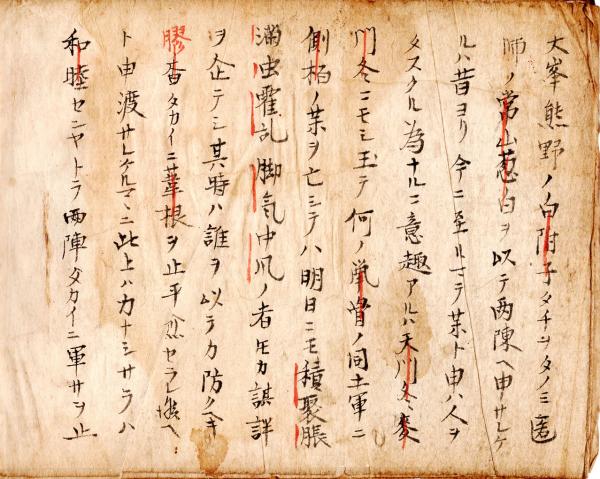 大峯熊野ノ白附子タチヲタノミ匿
師ノ常山葱白ヲ以テ両陳ヘ申サレケ
ルハ昔ヨリ今ニ至ルマテ薬ト申ハ人ヲ
タスクル為ナルニ意趣アルハ天門冬麦
門冬ニモシ玉テ何ノ 同士軍ニ
側柏ノ葉ヲ亡シテハ明日ニモ積聚脹
満虫霍乱脚気中風ノ者 カ謀詳
ヲ企テシ其時ハ誰ヲ以テカ防クヘキ
膠香タカイニ草根ヲ止平 セラレ ヘ
ト申渡サレケルマヽニ此上ハ力ナシサラハ
和睦センヤトラ両陣タカイニ軍サヲ止